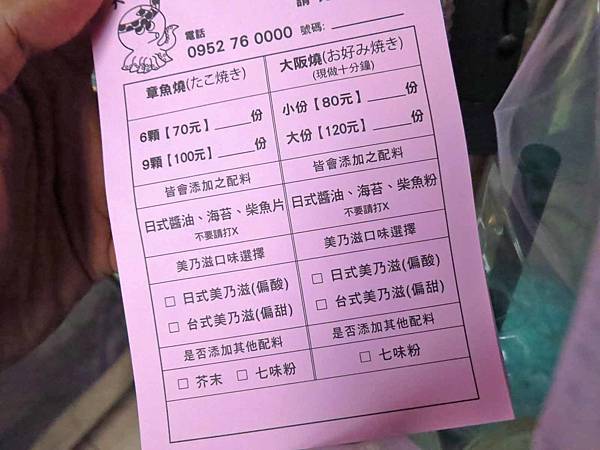 電話
0952 76 0000 號碼:
章魚燒(たこ焼き)
6顆【70元】_____份
9顆【100元】_____份
皆會添加之配料
日式醬油、海苔、柴魚片
不要請打X
美乃滋口味選擇
□ 日式美乃滋(偏酸)
□ 台式美乃滋(偏甜)
是否添加其他配料
□ 芥末 □ 七味粉
大阪燒(お好み焼き)
(現做十分鐘)
小份【80元】_____份
大份【120元】_____份
皆會添加之配料
日式醬油、海苔、柴魚粉
不要請打X
美乃滋口味選擇
□ 日式美乃滋(偏酸)
□ 台式美乃滋(偏甜)
是否添加其他配料
□ 七味粉